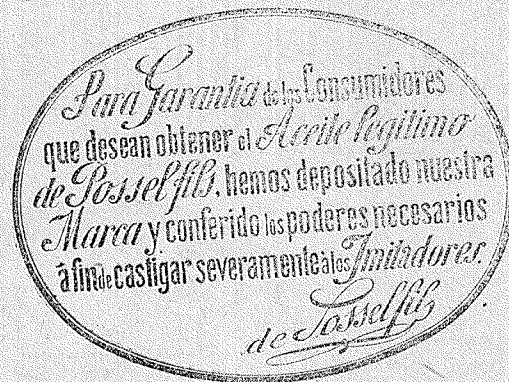 Para Garantia de los Consumidores
que desean obtener el Aceite legitimo
de Possel fils, hemos depositado nuestra
Marca y conferido los poderes necesarios
á fin de castigar severamente à los Imitadores.
de Possel fils